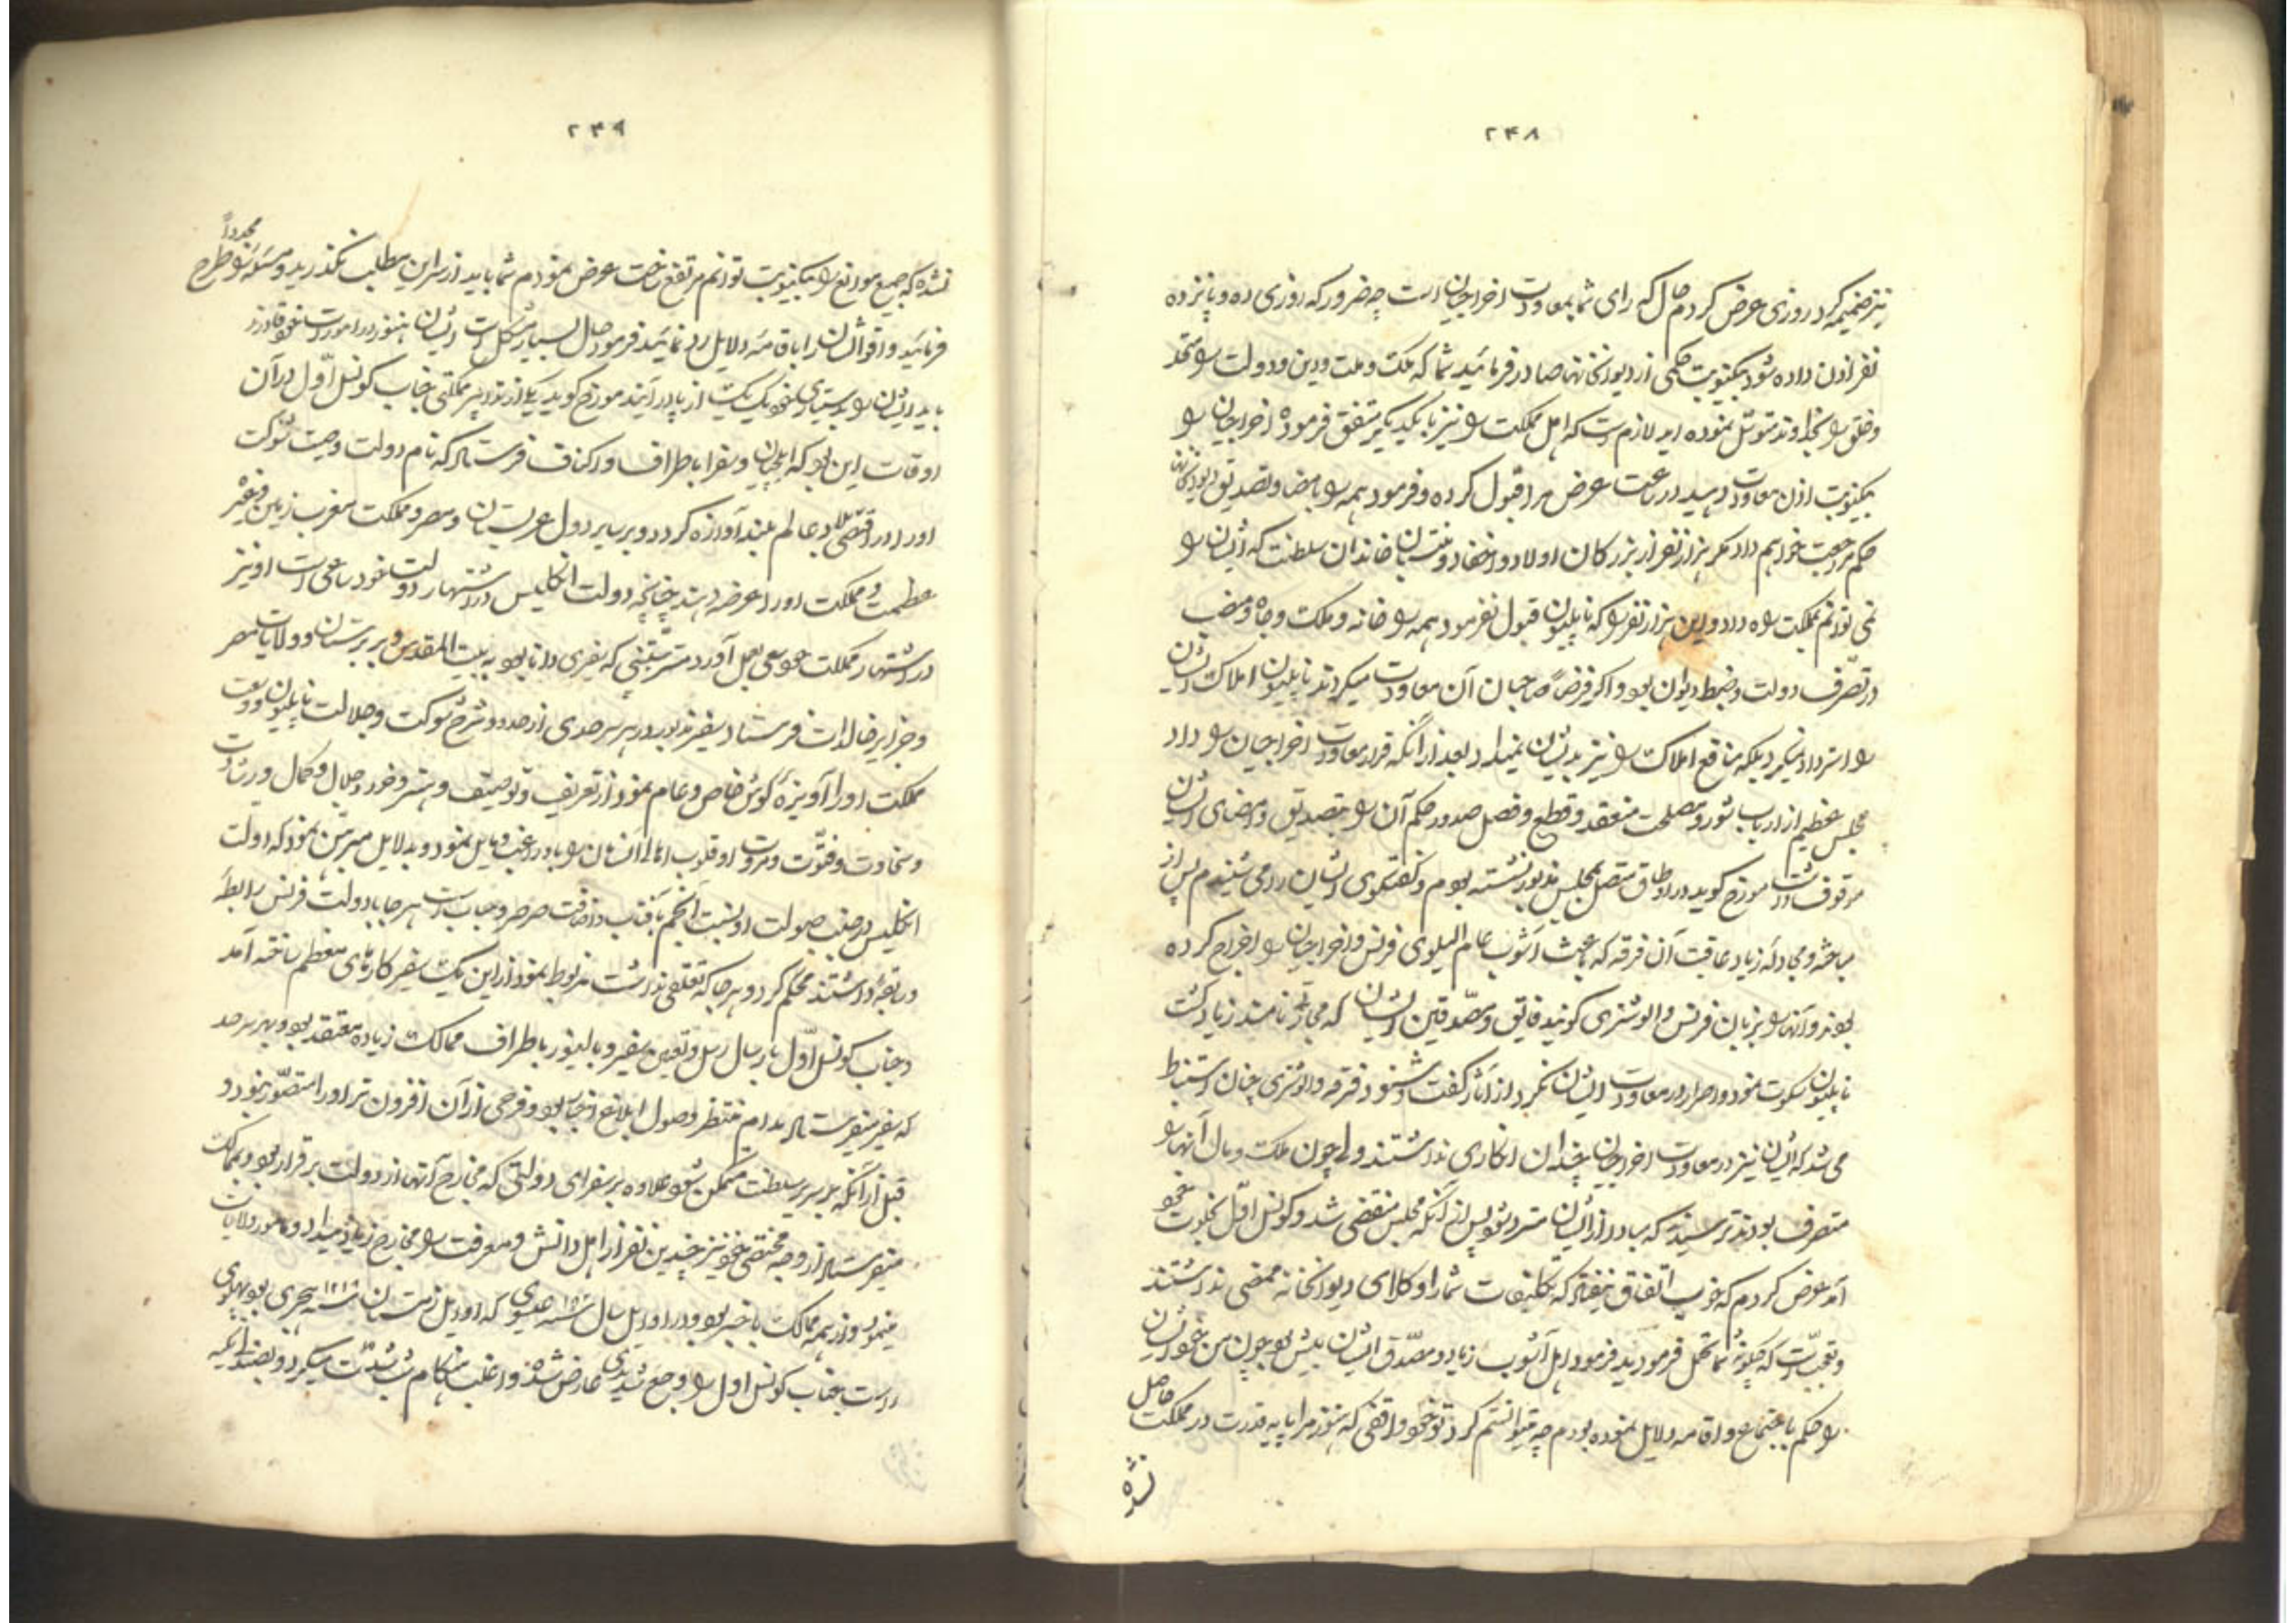 ۲۴۸
نیز ضمیمه کرد روزی عرض کردم حال که رای شما بمعاودت اخراجیان است چه ضرور که روزی ده و پانزده
نفر اذن داده شود بیکنوبت حکمی از دیوانخانها صادر فرمائید شما که ملکت و ملت و دین و دولت را متحد
و خلق را بخداوند متوسّل نموده اید لازم است که اهل مملکت را نیز با یکدیگر متفق فرموده اخراجیان را
بیکنوبت اذن معاودت دهید در ساعت عرض مرا قبول کرده و فرمود همه را بامضا و تصدیق دیوانخانه
حکم مراجعت خواهم داد مگر هزار نفر از بزرگان اولاد و احفاد و منتسبان خاندان سلطنت که ایشان را
نمی توانم بمملکت راه داد و این هزار نفر را که ناپلیون قبول نفرمود همه را خانه و ملک و جاه و منصب
در تصرّف دولت و ضبط دیوان بود و اگر فرضاً صاحبان آن معاودت میکردند ناپلیون املاک ایشان
را استرداد نمیکرد بلکه منافع املاک را نیز بدیشان نمیداد بعد از آنکه قرار معاودت اخراجیان را داد
مجلس عظیم از ارباب شور و مصلحت منعقد و قطع و فصل صدور حکم آن را بتصدیق و امضای ایشان
موقوف داشت مورخ گوید در اوطاق متصل بمجلس مذبور نشسته بودم و گفتگوی ایشان را می شنیدم پس از
مباحثه و مجادله زیاد عاقبت آن فرقه که باعث آشوب عام البلوی فرنس و اخراجیان را اخراج کرده
بودند و آنها را بزبان فرنس والوشنری گویند فایق و مصدّقین ایشان که می نامند زیاد گشت
ناپلیون سکوت نمود و اصرار در معاودت ایشان نکرد از آثار گفت و شنود فرقه والوشنری چنان استنباط
می شد که ایشان نیز در معاودت اخراجیان چندان انکاری نداشتند ولی چون ملک و مال آنها را
متصرف بودند ترسیدند که مبادا از ایشان مسترد شود پس از آنکه مجلس منقضی شد و کونسل اوّل بخلوت خود
آمد عرض کردم که خوب اتفاق نیفتاد که تکلیفات شما را وکلای دیوانخانه ممضی نداشتند
و تعجب است که چگونه شما تحمل فرمودید فرمود اهل آشوب زیاد و مصدّق ایشان بیش بود چون من خود ایشان
را حکم باجتماع و اقامه دلایل نموده بودم چه میتوانستم کرد تو خود واقفی که هنوز مرا پایه قدرت در مملکت حاصل
نشده
۲۴۹
نشده که جمیع موانع را بیکنوبت توانم مرتفع ساخت عرض نمودم شما باید از سر این مطلب نگذرید و مسئله را مجدداً طرح
فرمائید و اقوال ایشان را باقامه دلایل رد نمائید فرمود حال بسیار مشکل است ایشان هنوز در امورات خود قادرند
باید ایشان را بدستیاری خود یک یک از پا در آیند مورخ گوید یکی از تدابیر مملکتی جناب کونسل اوّل در آن
اوقات این بود که ایلچیان و سفرا باطراف و اکناف فرستاد که نام دولت و صیت شوکت
او را در اقصی بلاد عالم بلند آوازه گردد و بر سایر دول عربستان و مصر و مملکت مغرب زمین و غیره
عظمت و مملکت او را عرضه دهند چنانچه دولت انگلیس در اشتهار دولت خود ساعی است او نیز
در اشتهار مملکت خود سعی بعمل آورد مستر که سفری دانا بود به بیت المقدس و بربرستان و ولایات مصر
و جزایر خالدات فرستاد سفیر مذبور در هر سرحدی از حدود شرح شوکت و جلالت ناپلیون و وسعت
مملکت او را آویزه گوش خاص و عام نمود از تعریف و توصیف و هنر و خرد و جلال و کمال و رشادت
و سخاوت و فتوّت و مروت او قلوب اهالی آن سامان را باو راغب و مایل نمود و بدلایل مبرهن نمود که دولت
انگلیس در جنب صولت او نسبت انجم بآفتاب و اضافت صرصر و حباب است هر جا با دولت فرنس رابطه
و سابقه داشتند محکم کرد و هر جا که تعلقی نداشت مربوط نمود از این یک سفیر کارهای معظم ساخته آمد
و جناب کونسل اوّل بارسال رسل و تعیین سفیر و بالیوز باطراف ممالک زیاده معتقد بود و بهر سرحد
که سفیر میفرستاد مدام منتظر وصول ابلاغ آنجا بود و فرحی از آن افزون تر او را متصوّر نبود و
قبل از آنکه بر سریر سلطنت متمکن شود علاوه بر سفرای دولتی که مخارج آنها از دولت برقرار بود و بممالک
میفرستاد از وجه مختص خود نیز چندین نفر از اهل دانش و معرفت را مخارج زیاد میداد و مأمور ولایات
مینمود و از همه ممالک باخبر بود و در اوایل سال عیسوی که اوایل زمستان سنه ۱۲۱۶ هجری بود پهلوی
راست جناب کونسل اول را وجع شدیدی عارض شده و اغلب هنگام شب شدّت میکرد و بضد آنکه